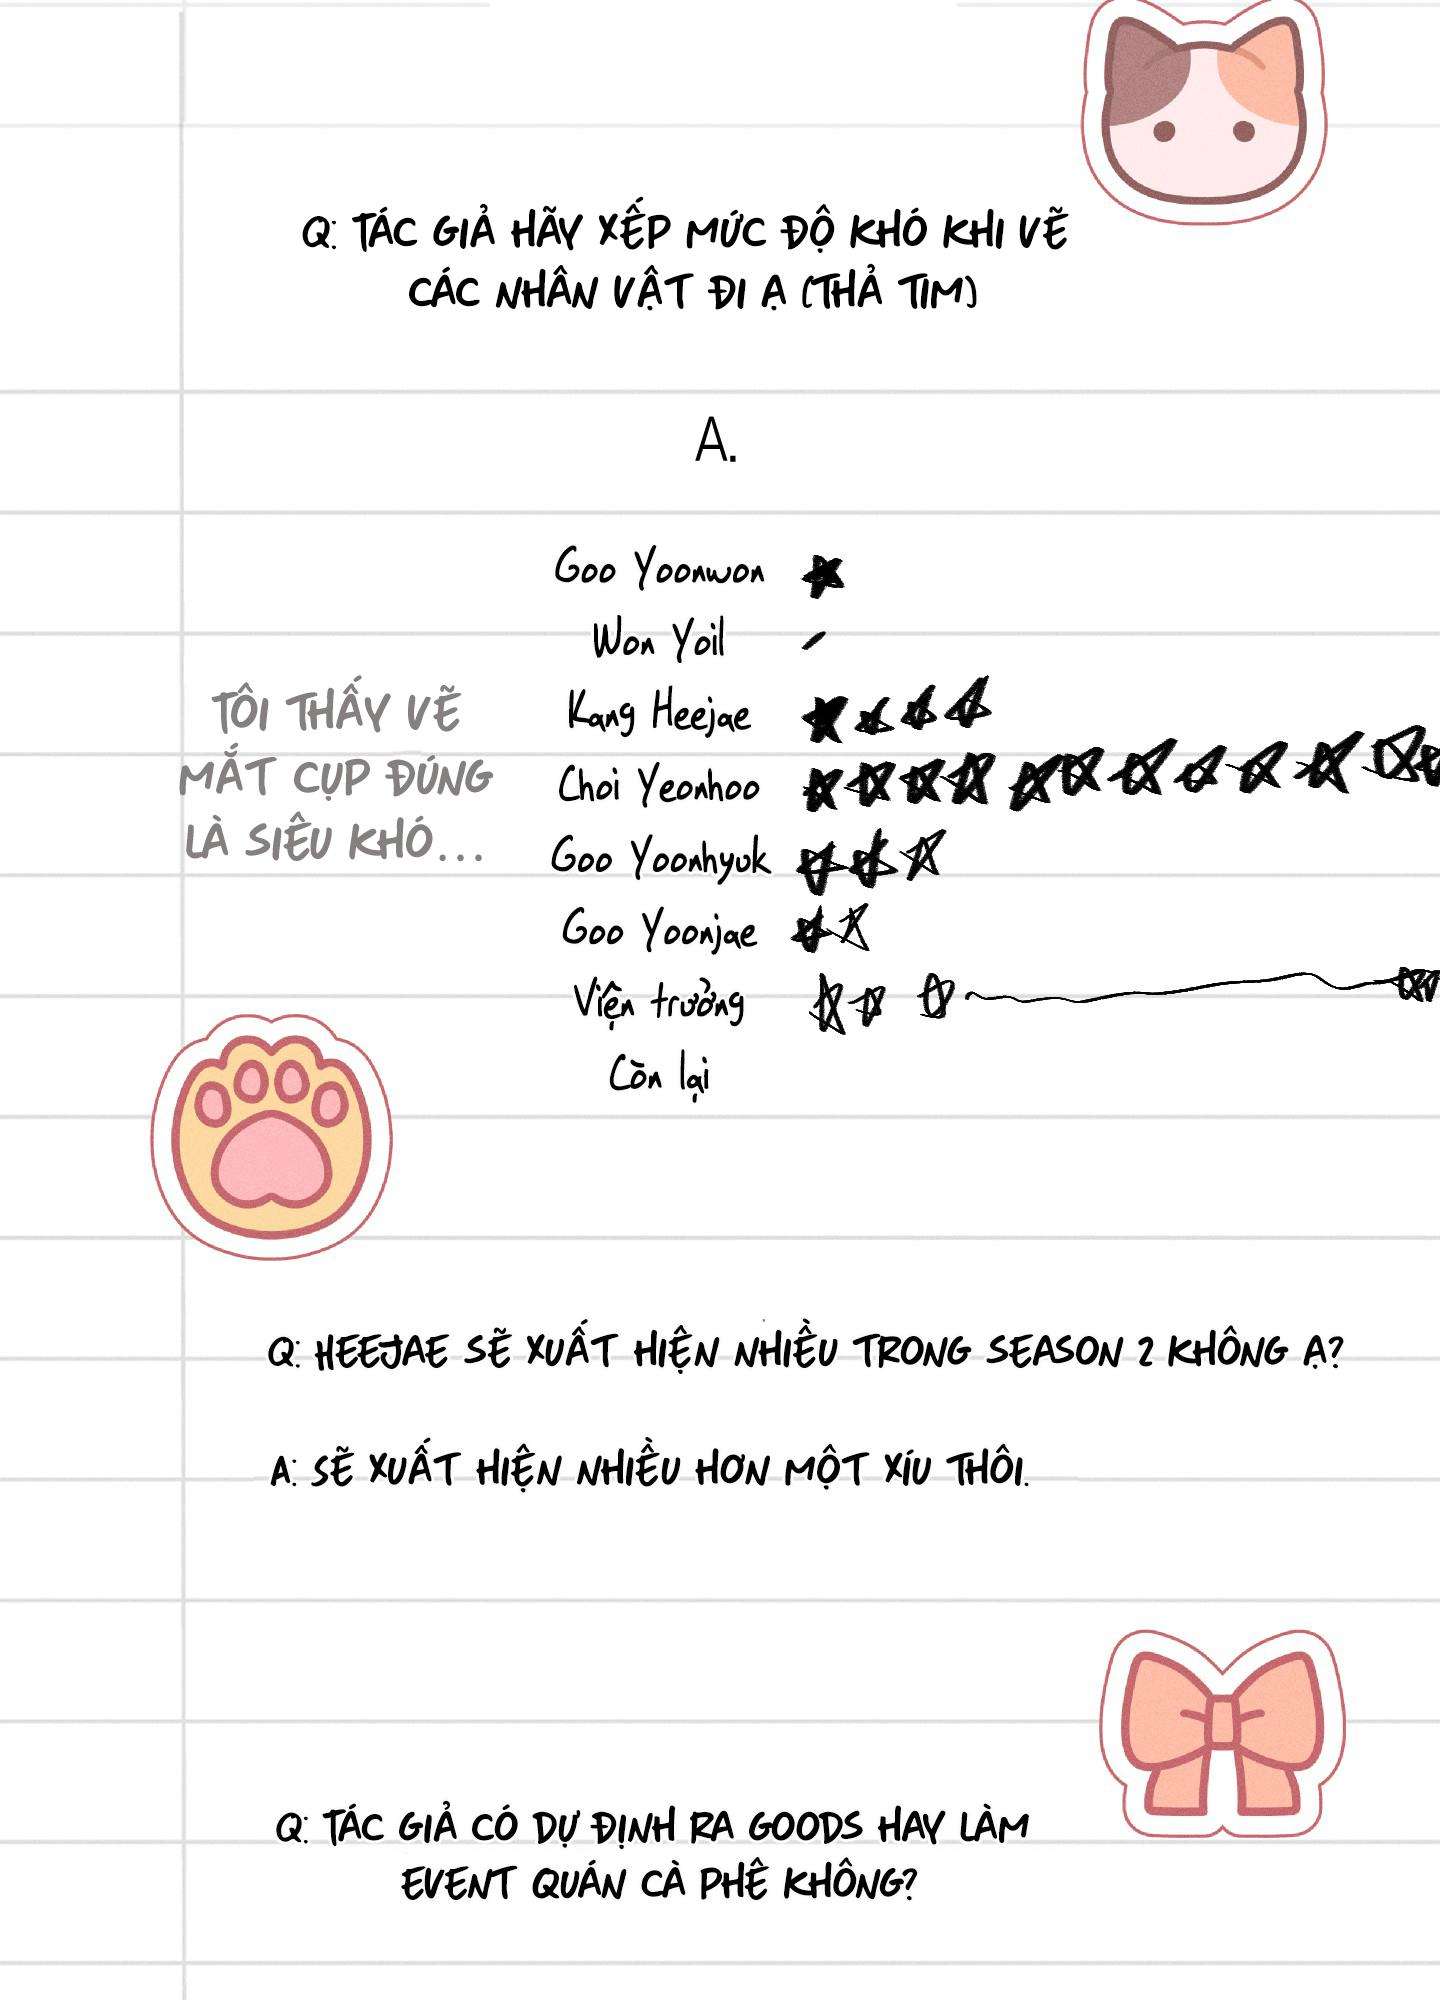 Q: TÁC GIẢ HÃY XẾP MỨC ĐỘ KHÓ KHI VẼ
CÁC NHÂN VẬT ĐI Ạ (THẢ TIM)
A.
Goo Yoonwon
Won Yoil
Kang Heejae
Choi Yeonhoo
Goo Yoonhyuk
Goo Yoonjae
Viện trưởng
Còn lại
TÔI THẤY VẼ
MẮT CỤP ĐÚNG
LÀ SIÊU KHÓ...
Q: HEEJAE SẼ XUẤT HIỆN NHIỀU TRONG SEASON 2 KHÔNG Ạ?
A: SẼ XUẤT HIỆN NHIỀU HƠN MỘT XÍU THÔI.
Q: TÁC GIẢ CÓ DỰ ĐỊNH RA GOODS HAY LÀM
EVENT QUÁN CÀ PHÊ KHÔNG?